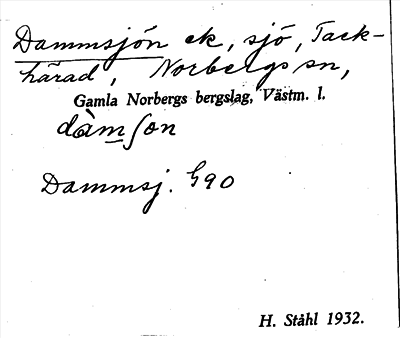 Dammsjön ek, sjö, Tack-
härad, Norbergs sn,
Gamla Norbergs bergslag, Västm. l.
dàmʃon
Dammsj. G90
H. Ståhl 1932.